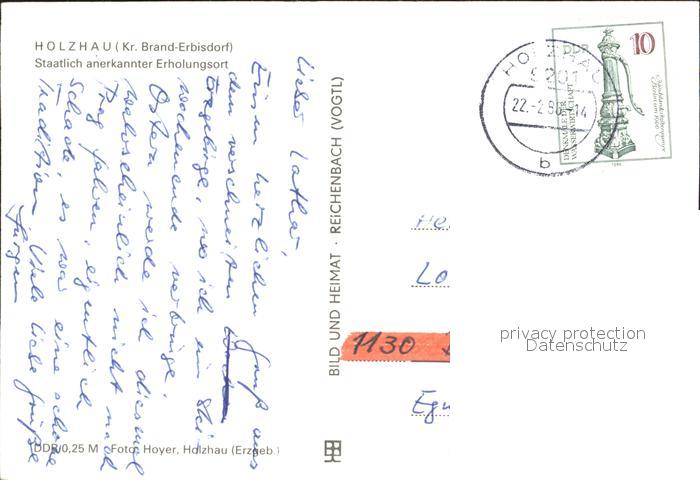 HOLZHAU (Kr. Brand-Erbisdorf)
Staatlich anerkannter Erholungsort
Lieber Lothar,
Einen herzlichen Gruß aus
dem verschneiten
Erzgebirge, wo ich ein Ski-
wochenende verbringe.
Ostern werde ich diesmal
wahrscheinlich nicht nach
Prag fahren, eigentlich
schade, es war eine schöne
Tradition. Viele liebe Grüße
Jürgen
DDR/0,25 M Foto: Hoyer, Holzhau (Erzgeb.)
BILD UND HEIMAT · REICHENBACH (VOGTL)
HOLZHAU
9201
22.-2.86-14
b
DDR
10
DENKMALE DER
WASSERWIRTSCHAFT
1986
He
Lo
1130
Egu
privacy protection
Datenschutz